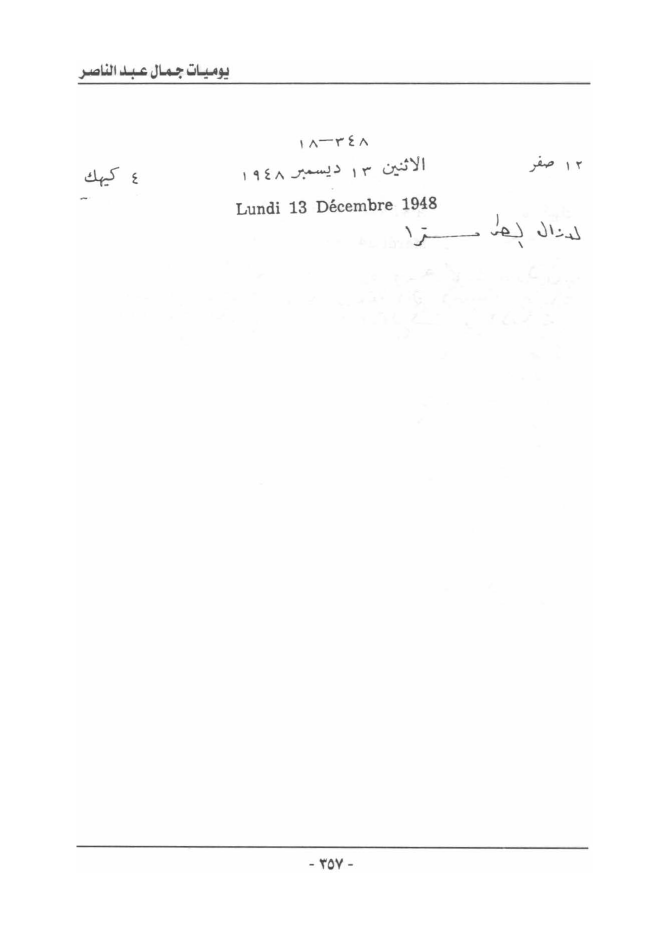 يوميات جمال عبد الناصر
٣٤٨-١٨
١٢ صفر الاثنين ١٣ ديسمبر ١٩٤٨ ٤ كيهك
Lundi 13 Décembre 1948
لا زال مستمرا
- ٣٥٧ -